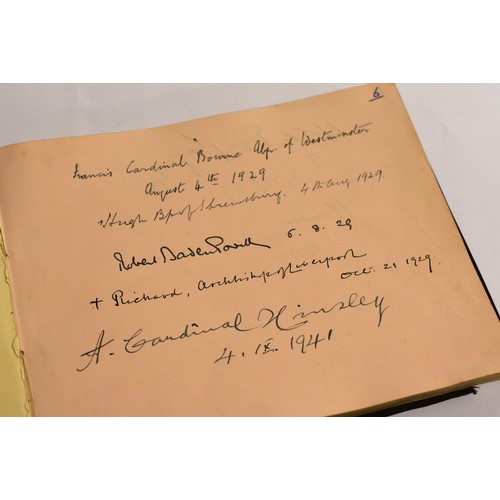 6
Francis Cardinal Bourne Abp. of Westminster
August 4th 1929
+ Hugh Bp of Shrewsbury. 4th Aug 1929.
Robert Baden Powell 6.8.29
+ Richard, Archbishop of Liverpool Oct. 21 1929.
A. Cardinal Hinsley
4. IX. 1941